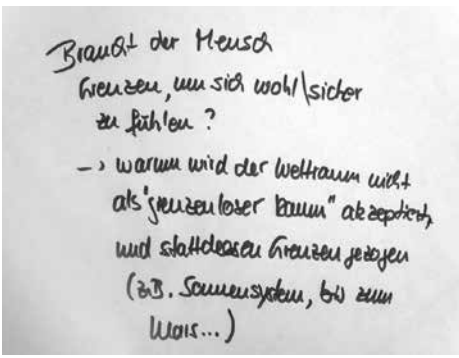 Braucht der Mensch
Grenzen, um sich wohl\sicher
zu fühlen?
-> warum wird der Weltraum nicht
als "grenzenloser Raum" akzeptiert,
und stattdessen Grenzen gezogen
(z.B. Sonnensystem, bis zum
Mars...)